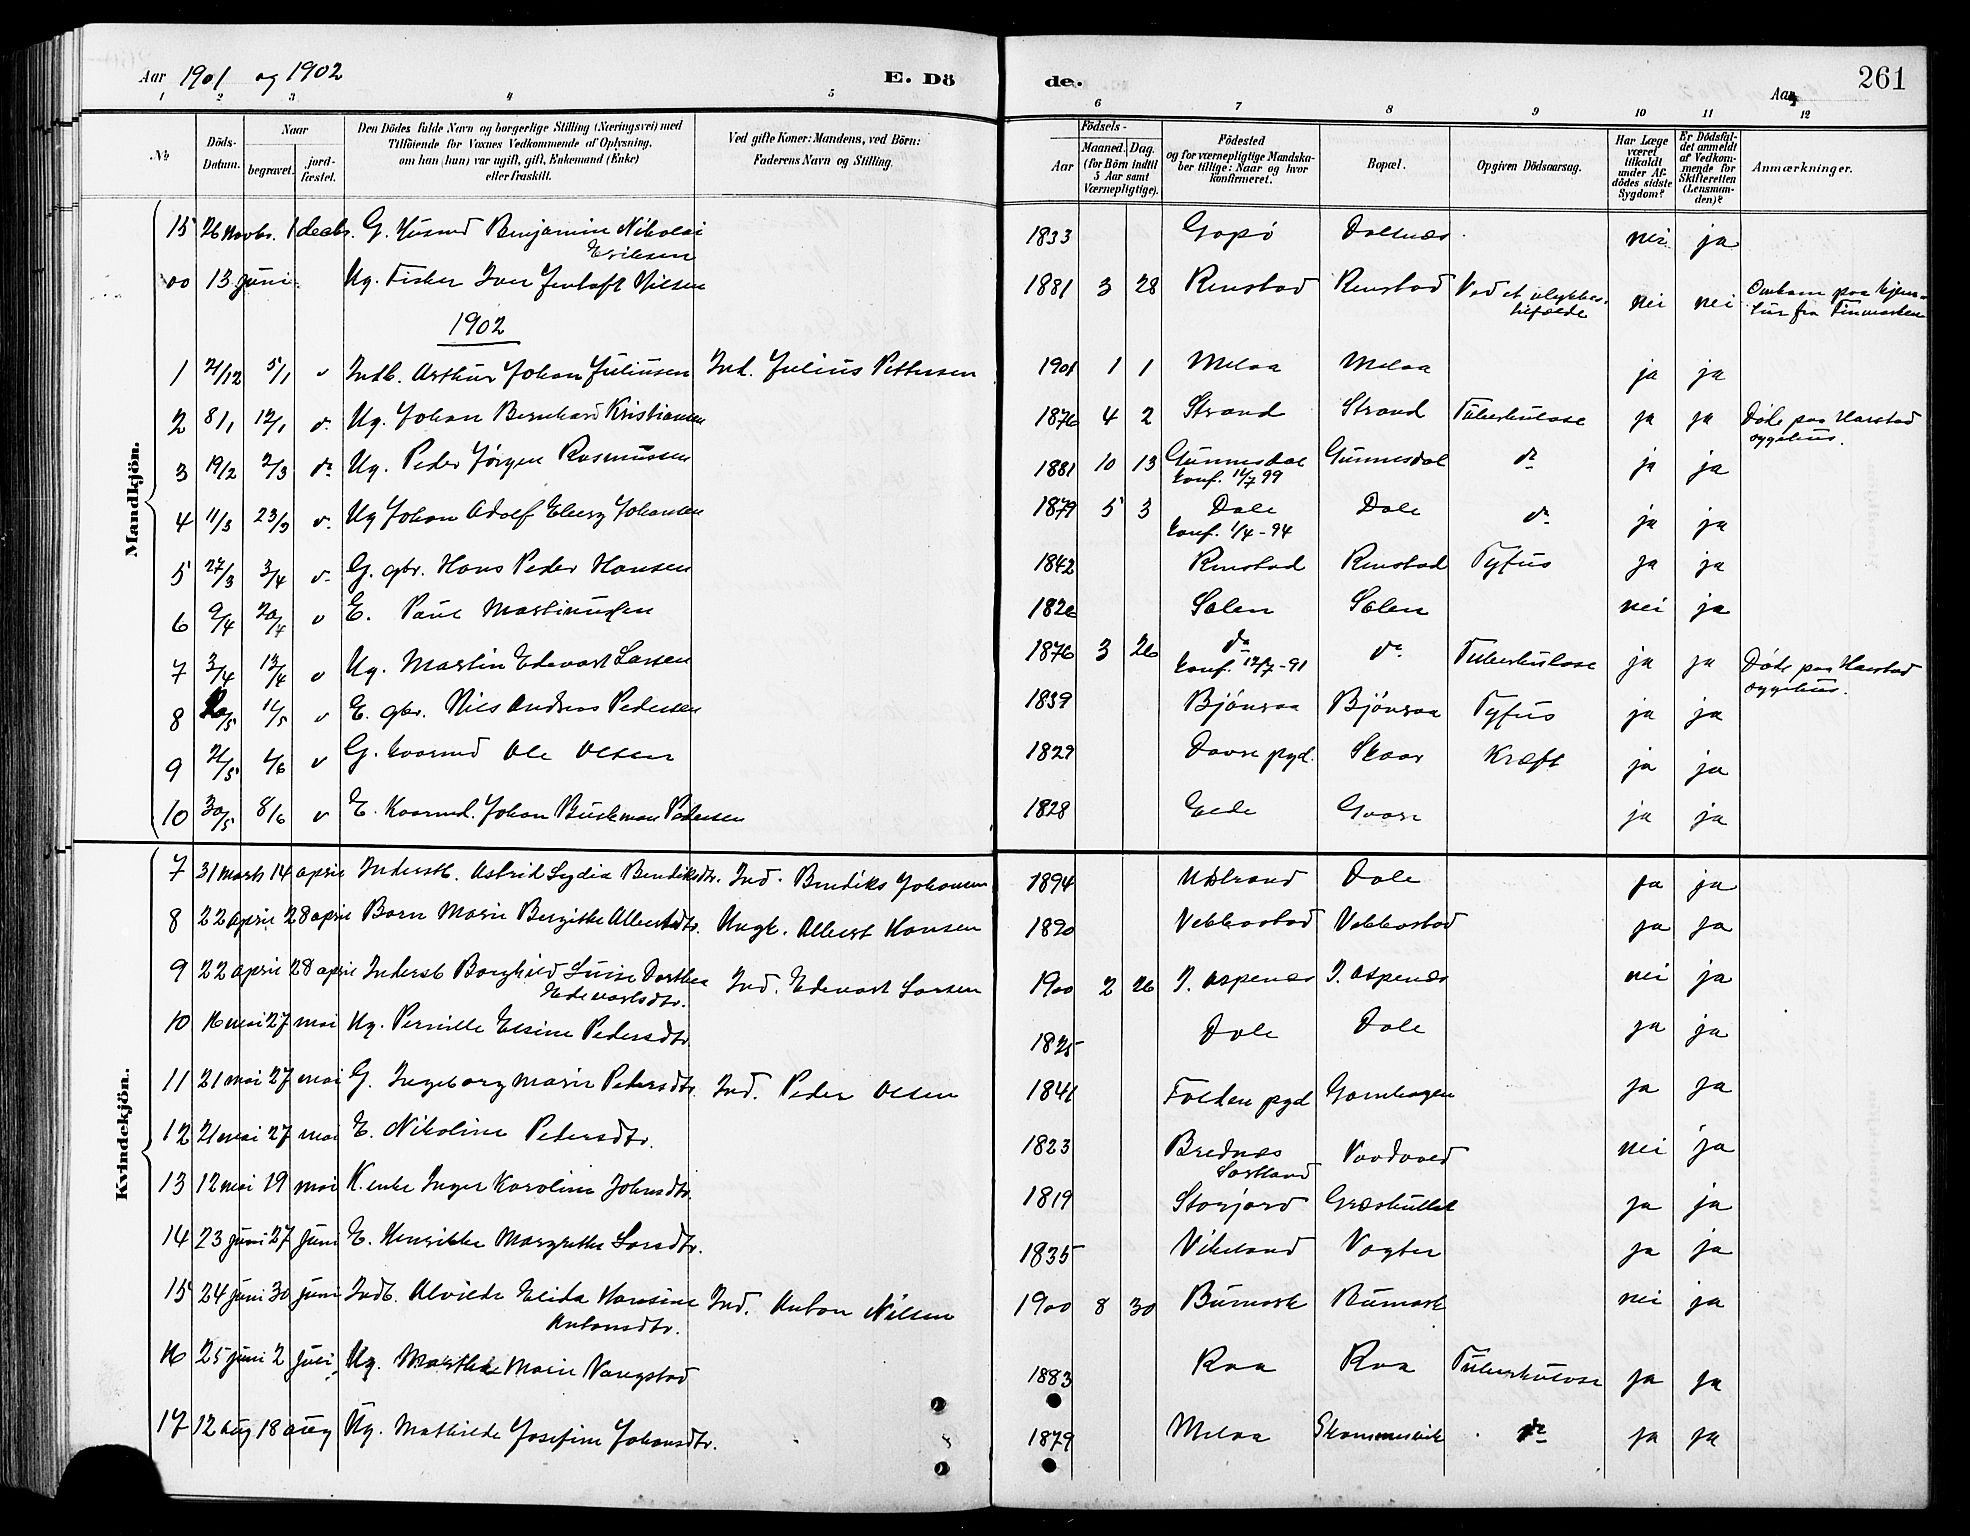 Aar 1901 og 1902 E. Dö de. Aar 261
1 2 3 4 5 6 7 8 9 10 11 12
No
Döds-Datum.
Naar
begravet.
jord-fæstet.
Den Dödes fulde Navn og borgerlige Stilling (Næringsvei) med
Tilföiende for Voxnes Vedkommende af Oplysning,
om han (hun) var ugift, gift, Enkemand (Enke)
eller fraskilt.
Ved gifte Koner: Mandens, ved Börn:
Faderens Navn og Stilling.
Födsels-
Aar
Maaned. Dag.
(for Börn indtil
5 Aar samt
Værnepligtige).
Födested
og for værnepligtige Mandska-
ber tillige: Naar og hvor
konfirmeret.
Bopæl.
Opgiven Dödsaarsag.
Har Læge
været
tilkaldt
under Af-
dödes sidste
Sygdom?
Er Dödsfal-
det anmeldt
af Vedkom-
mende for
Skifteretten
(Lensman-
den)?
Anmærkninger.
Mandkjön.
15 26 Novbr. 1 decbr. G. Husmd Benjamin Nikolai 1833 Gapö Doltnæs nei ja
Eriksen
00 13 juni Ug. Fisker Iver Jentoft Nilsen 1881 3 28 Renstad Renstad Ved et ulykkes- nei nei Omkom paa hjem-
tilfælde tur fra Finmarken
1902
1 21/12 5/1 v Indb. Arthur Johan Juliusen Ind. Julius Pettersen 1901 1 1 Melaa Melaa ja ja
2 8/1 12/1 v. Ug. Johan Bernhard Kristiansen 1876 4 2 Strand Strand Tuberkulose ja ja Døde paa Harstad
sygehus.
3 19/2 2/3 do Ug. Peder Jørgen Rasmussen 1881 10 13 Gunnesdal Gunnesdal do ja ja
konf. 16/7 99
4 11/3 23/3 v. Ug Johan Adolf Eberg Johansen 1879 5 3 Dale Dale do ja ja
konf. 1/4-94
5 27/3 3/4 v. G. gbr. Hans Peder Hansen 1842 Renstad Renstad Tyfus ja ja
6 9/4 20/4 v E. Paul Martinusen Salen Salen nei ja
7 3/4 13/4 v Ug. Martin Edevart Larsen 1876 3 26 do do Tuberkulose ja ja Døde paa Harstad
konf. 12/7-91 sygehus.
8 11/5 v E. gbr. Nils Andreas Pedersen 1839 Bjönraa Bjönraa Tyfus ja ja
9 21/5 1/6 v G. kaarmd Ole Olsen 1829 Skaar Kræft ja ja
10 30/5 8/6 v E. Kaarmd. Johan Buckman Pedersen 1828 Elde Gaare ja ja
Kvindekjön.
7 31 marts 14 april Inderstb. Astrid Lydia Bendiksdtr. Ind. Bendiks Johansen 1894 Ustrand Dale ja ja
8 22 april 28 april Barn Marie Bergitte Albertsdtr. Ungk. Albert Hansen 1890 Vebbostad Vebbostad ja ja
9 22 april 28 april Inderstb Borghild Luise Dorthea Ind. Edevart Larsen 1900 2 26 I. Aspenæs I. Aspenæs nei ja
Edevartsdtr.
10 16 mai 27 mai Ug. Pernille Elsine Pedersdtr. 1825 Dale Dale ja ja
11 21 mai 27 mai G. Ingeborg Marie Pedersdtr. Ind. Peder Olsen 1841 Folden pgd Gamhagen ja ja
12 21 mai 27 mai E. Nikoline Pedersdtr. 1823 Brednæs Vardaved nei ja
Sortland
13 12 mai 19 mai K. enke Inger Karoline Johnsdtr. 1819 Storjord Græsholtet ja ja
14 23 juni 27 juni E. Henrikke Margrethe Larsdtr. 1835 Vikeland Vogter ja ja
15 24 juni 30 juni Indb. Alvilde Elida Hansine Ind. Anton Nilsen 1900 8 30 Bumark Bumark nei ja
Antonsdtr.
16 25 juni 2 juli Ug. Marthe Marie Vangstad 1883 Raa Raa Tuberkulose ja ja
17 12 aug 18 aug Ug. Mathilde Josefine Johansdtr. 1879 Melaa Skommesvik do ja ja